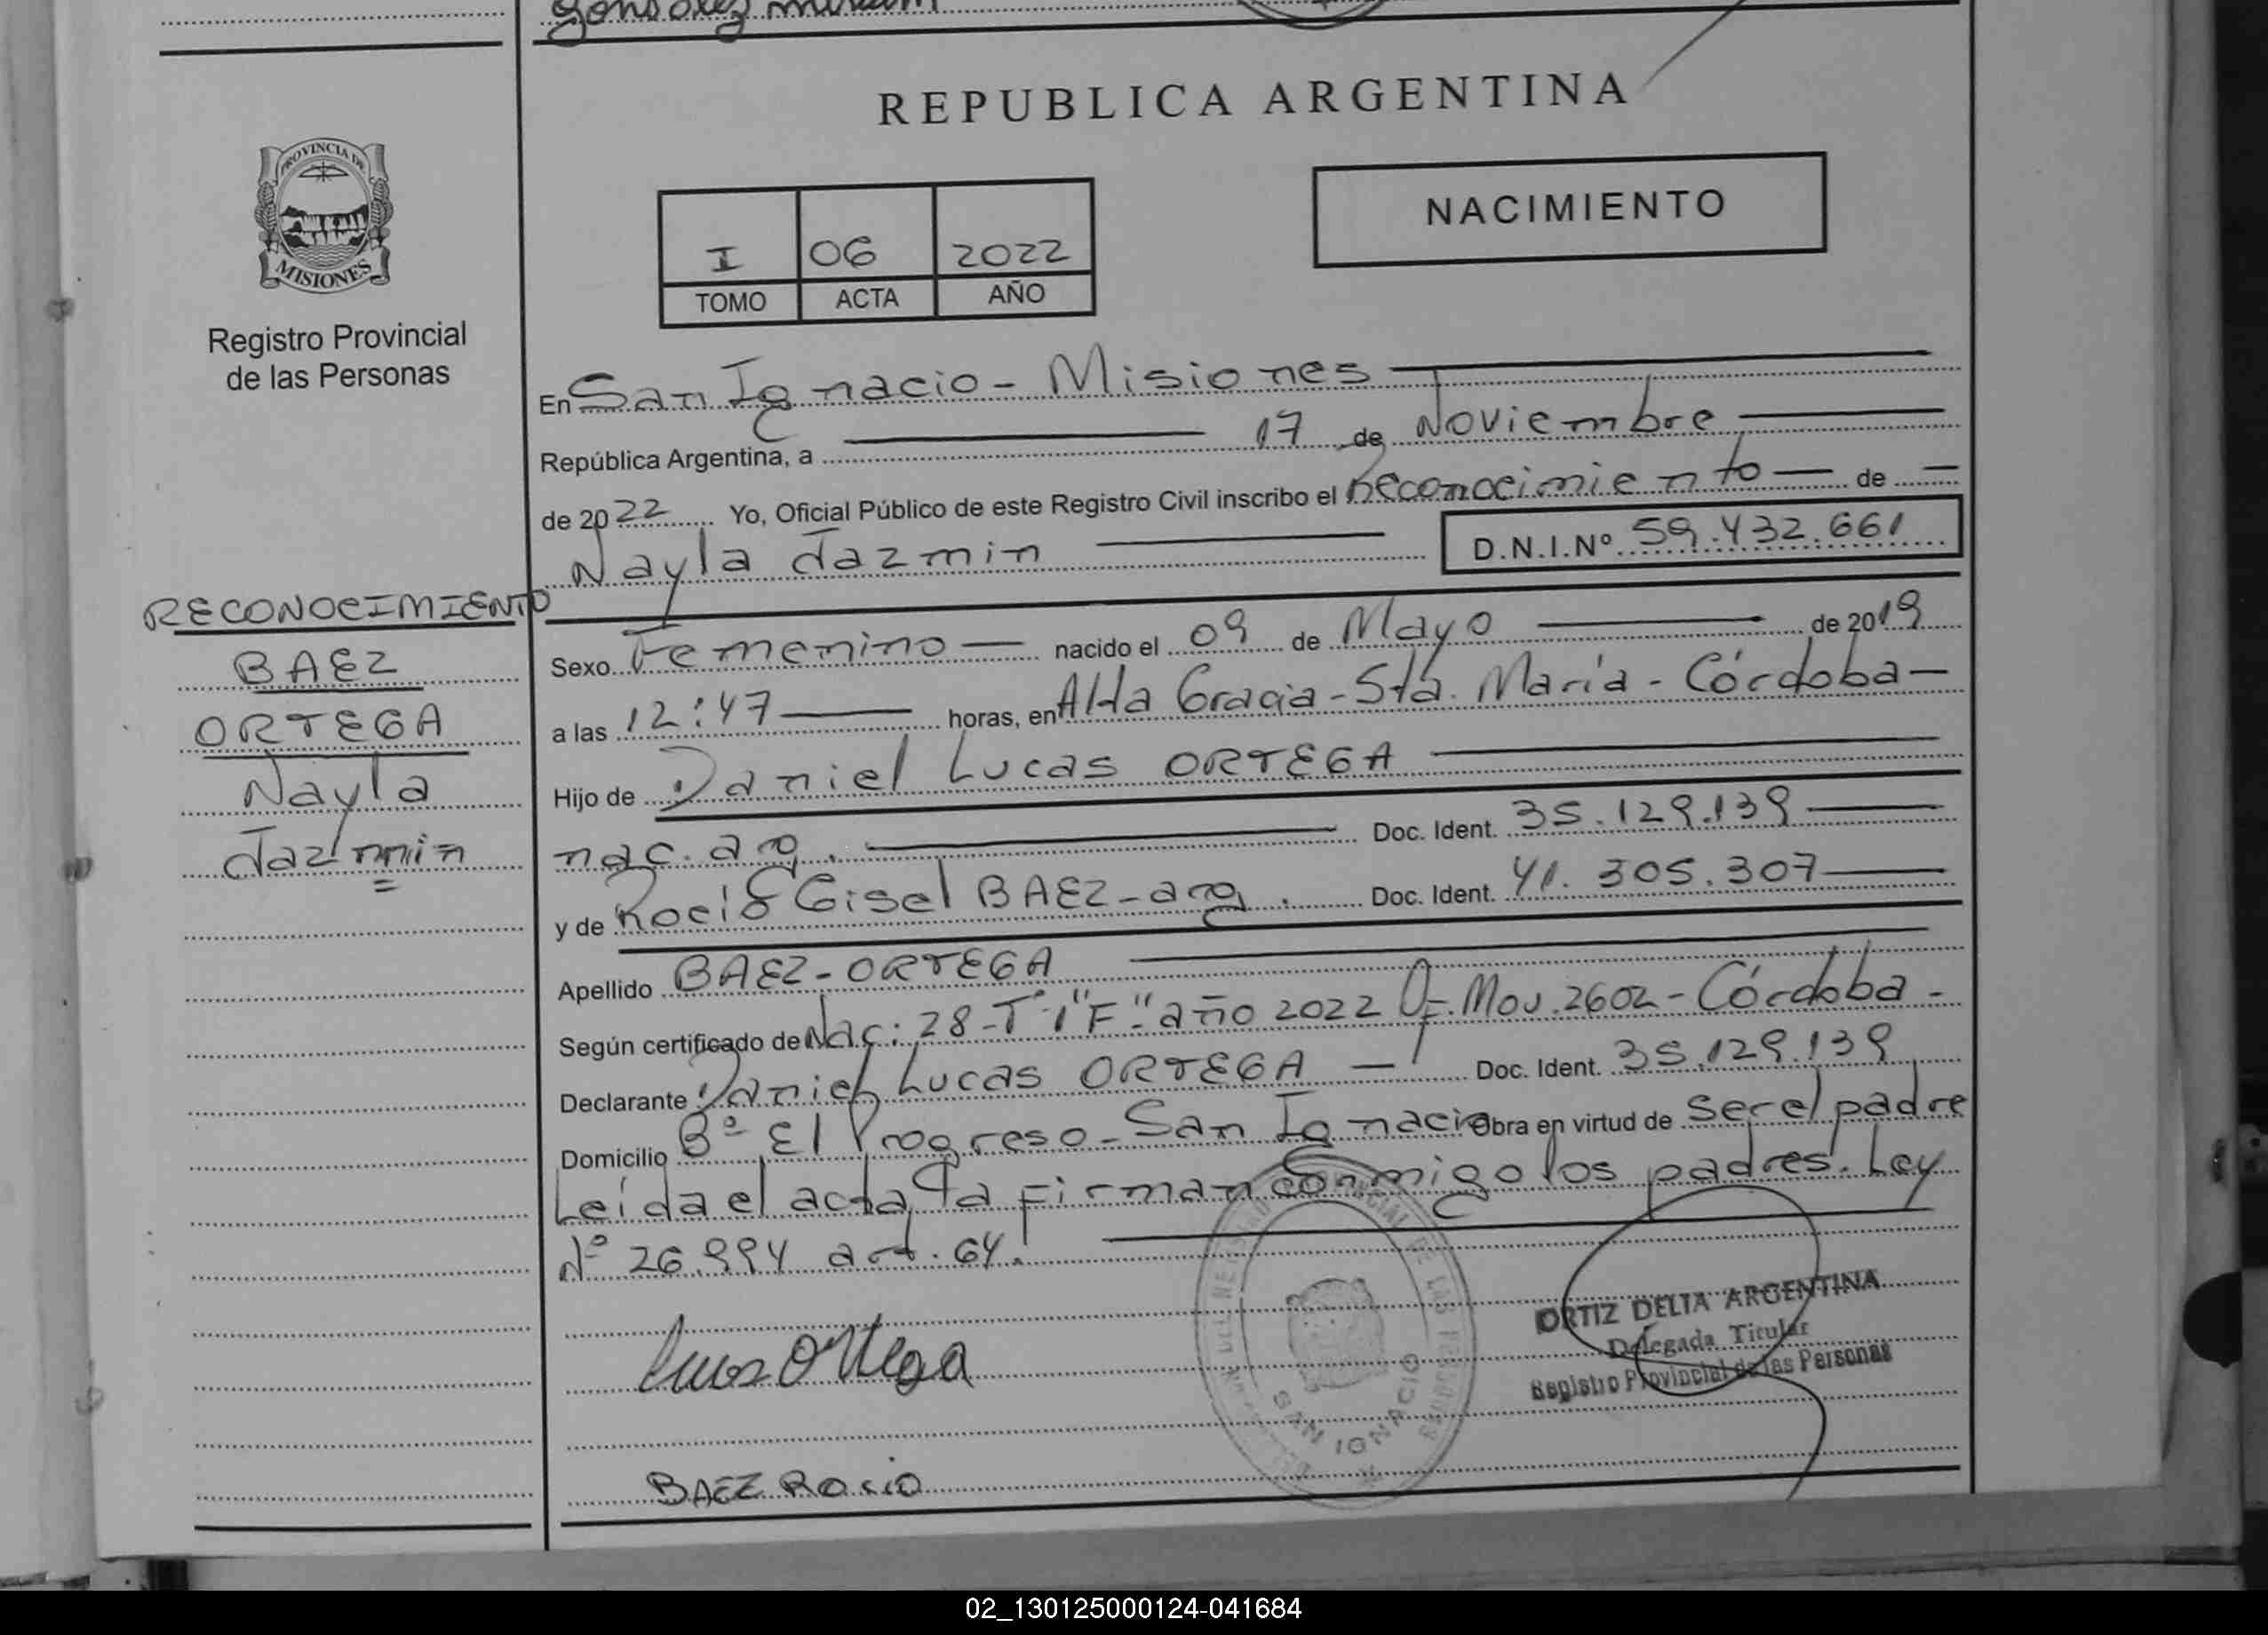 González Miriam
REPUBLICA ARGENTINA
PROVINCIA DE
MISIONES
Registro Provincial
de las Personas
NACIMIENTO
I 06 2022
TOMO ACTA AÑO
En San Ignacio - Misiones
República Argentina, a 17 de Noviembre
de 2022 Yo, Oficial Público de este Registro Civil inscribo el Reconocimiento de
Nayla Jazmin D.N.I.Nº 59.432.661
RECONOCIMIENTO
BAEZ
ORTEGA
Nayla
Jazmin
Sexo Femenino nacido el 09 de Mayo de 2019
a las 12:47 horas, en Alta Gracia - Sta. María - Córdoba
Hijo de Daniel Lucas ORTEGA
nac. arg. Doc. Ident. 35.129.139
y de Rocío Gisel BAEZ - arg. Doc. Ident. 41.305.307
Apellido BAEZ - ORTEGA
Según certificado de Nac: 28 - Tº 1 "F" - año 2022 Of. Mov. 2602 - Córdoba -
Declarante Daniel Lucas ORTEGA Doc. Ident. 35.129.139
Domicilio Bº El Progreso - San Ignacio Obra en virtud de ser el padre
Leída el acta la firman conmigo los padres. Ley
Nº 26.994 art. 64.
Lucas Ortega
ORTIZ DELIA ARGENTINA
Delegada Titular
Registro Provincial de las Personas
SAN IGNACIO
BAEZ Rocio
02_130125000124-041684